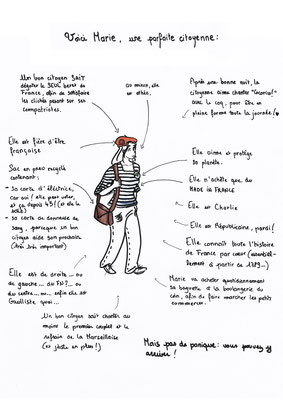 Voici Marie, une parfaite citoyenne:
Un bon citoyen SAIT
dégoter le SEUL beret de
France, afin de satisfaire
les clichés pesant sur ses
compatriotes.
Au mieux, elle
est athée.
Après une bonne nuit, la
citoyenne aime chanter "Cocorico!"
avec le coq, pour être en
pleine forme toute la journée!
Elle est fière d'être
française
Sac en peau recyclé
contenant:
- sa carte d'électrice,
car oui! elle peut voter,
et ça depuis 45! (et de la
- sa carte de donneuse de
sang, parceque un bon
citoyen aide son prochain
(très très important)
Elle aime et protège
sa planète.
Elle n'achète que du
MADE in FRANCE
Elle est Charlie
Elle est Républicaine, pardi!
Elle connaît toute l'histoire
de France par cœur (essentiel-
lement à partir de 1789...)
Elle est de droite... ou
de gauche... du FN?... ou
du centre... ou, enfin elle est
Gaulliste quoi...
Marie va acheter quotidiennement
sa baguette à la boulangerie du
coin, afin de faire marcher les petits
commerces.
Un bon citoyen sait chanter au
moins le premier couplet et le
refrain de la Marseillaise
(et juste en plus!)
Mais pas de panique: vous pouvez y
arriver!